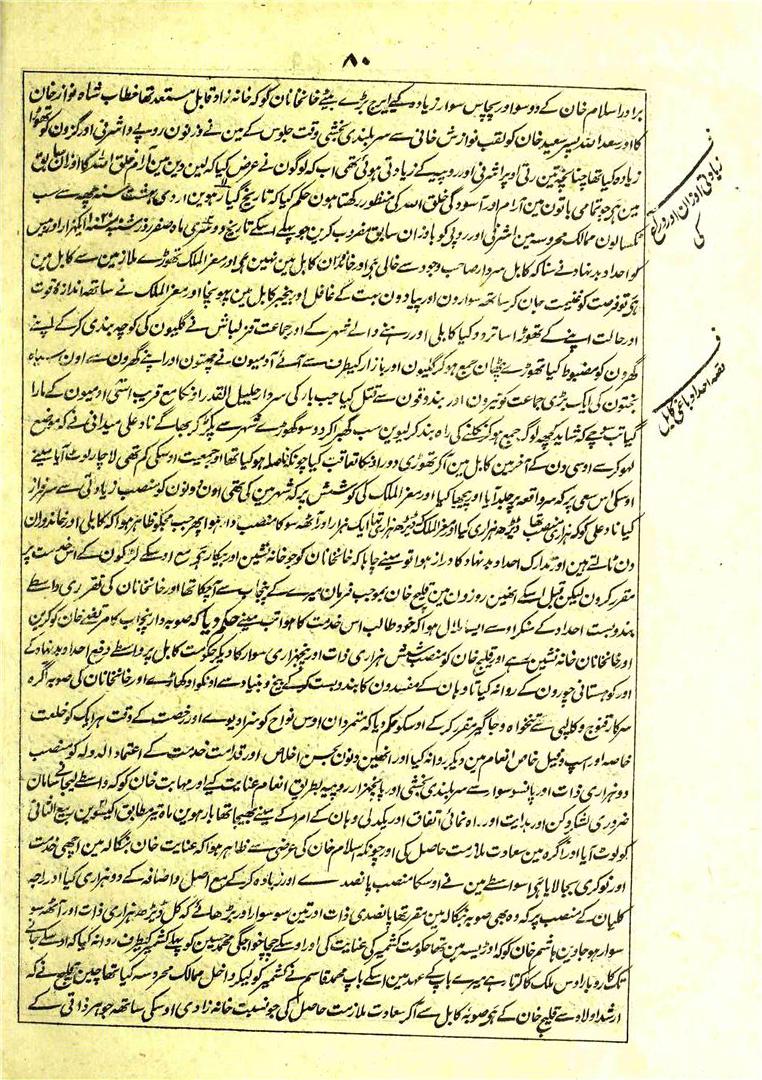 ۸۰
برادر اسلام خان کے دو سو اور پچاس سوار زیادہ کیے ایرج بڑے بیٹے خانخانان کو کہ خانہ زاد قابل مستعد تھا خطاب شاہ نواز خان
کا اور سعد اللہ پسر سعید خان کو لقب نوازش خانی سے سربلندی بخشی وقت جلوس کے مین نے وزنون روپے و اشرفی اور گزون کو تھوڑا
زیادہ کیا تھا چنانچہ تین رتی اوپر اشرفی اور روپیہ کے زیادتی ہوئی تھی اب کہ لوگون نے عرض کیا کہ لین دین مین آرام خلق اللہ کا اوزان سابق
مین ہے جو تمامی باتون مین آرام اور آسودگی خلق اللہ کی منظور رکھتا ہون حکم کیا کہ تاریخ گیارہوین اردی بہشت سنہ چھہ سے سب
ٹکسالون ممالک محروسہ مین اشرفی اور روپی کو باوزان سابق مضروب کرین جو پہلے اسکے تاریخ دو ماہ صفر روز شنبہ سنہ ۱۰۲۰ ایکہزار اور بیس
کو احداد بدنہاد نے سنا کہ کابل سردار صاحب وجود سے خالی ہے اور خاندوران کابل مین نہین ہے اور معز الملک تھوڑے ملازمین سے کابل مین
ہے تو فرصت کو غنیمت جان کر ساتھ سوارون اور پیادون بہت کے غافل اور بیخبر کابل مین پہونچا اور معز الملک نے ساتھ اندازہ قوت
اور حالت اپنے کے تھوڑا سا تردد کیا کابلی اور رہنے والے شہر کے اور جماعت قزلباش نے گلیون کی کوچہ بندی کرکے اپنے
گھرون کو مضبوط کیا تھوڑے پٹھان جمع ہوکر گلیون اور بازار کیطرف سے آئے آدمیون نے چھتون اور اپنے گھرون سے اون سیاہ
بختون کی ایک بڑی جماعت کو تیرون اور بندوقون سے قتل کیا جب بارکی سردار جلیل القدر اونکا مع قریب اسّی آدمیون کے مارا
گیا تب سمجھے کہ شاید کچھ لوگ جمع ہوکر نکلنے کی راہ بند کر لیوین سب گھبرا کر دو سو گھوڑے شہر سے پکڑ کر بھاگے ناد علی میدانی نے کہ موضع
لہوگر سے اوسی دن کے آخر مین کابل مین آکر تھوڑی دور اونکا تعاقب کیا چونکہ فاصلہ ہو گیا تھا اور جمعیت اوسکی کم تھی لاچار لوٹ آیا مینے
اوسکی اس سعی پر کہ سر واقعہ پر جلد آیا اور پیچھا کیا اور معز الملک کی کوشش پر کہ شہر مین کی تھی اون دونون کو منصب زیادتی سے سرفراز
کیا ناد علی کو کہ ہزاری منصب تھا ڈیڑھ ہزاری کیا اور معز الملک ڈیڑھ ہزاری تھا ایک ہزار اور آٹھ سو کا منصب دار ہوا پھر جب مجکو ظاہر ہوا کہ کابلی اور خاندوران
دن ٹالتے ہین اور تدارک احداد بدنہاد کا دراز ہوا تو مینے چاہا کہ خانخانان کو جو خانہ نشین اور بیکار ہے مع اوسکے لڑکون کے اس خدمت پر
مقرر کرون لیکن قبل اسکے انہین روزون مین قلیچ خان بموجب فرمان میرے کے پنجاب سے آچکا تھا اور خانخانان کی تقرری واسطے
بندوبست احداد کے سنکر اوسے ایسا ملال ہوا کہ خود طالب اس خدمت کا ہوا تب مینے حکم دیا کہ صوبہ دار پنجاب کا مرتضے خان کو کرین
اور خانخانان خانہ نشین رہے اور قلیچ خان کو منصب شش ہزاری ذات اور پنجہزاری سوار کا دیکر حکومت کابل پر واسطے دفع احداد بدنہاد کے
اور کوہستانی چورون کے روانہ کیا تا وہان کے مفسدون کا بندوبست کرکے بیخ و بنیاد سے اونکو اوکھاڑے اور خانخانان کی صوبہ آگرہ
سرکار قنوج و کالپی سے تنخواہ و جاگیر مقرر کرکے اوسکو حکم دیا کہ متمردان اوس نواح کو سزا دیوے اور رخصت کے وقت ہر ایک کو خلعت
خاصہ اور اسپ و فیل خاص انعام مین دیکر روانہ کیا اور انہین دنون بحسن اخلاص اور قدامت خدمت کے اعتماد الدولہ کو منصب
دو ہزاری ذات اور پانسو سوار سے سربلندی بخشی اور پانچہزار روپیہ بطریق انعام عنایت کیے اور مہابت خان کو کہ واسطے لیجانے سامان
ضروری لشکر دکن اور ہدایت اور راہ نمائی اتفاق اور یکدلی وہان کے امرا کے مینے بھیجا تھا بارہوین ماہ تیر مطابق اکیسوین ربیع الثانی
کو لوٹ آیا اور آگرہ مین سعادت ملازمت حاصل کی اور چونکہ اسلام خان کی عرضی سے ظاہر ہوا کہ عنایت خان بنگالہ مین اچھی خدمت
اور نوکری بجا لایا ہے اسواسطے مین نے اوسکا منصب پانصدی اور زیادہ کرکے مع اصل و اضافہ کے دو ہزاری کیا اور راجہ
کلیان کے منصب پر کہ وہ بھی صوبہ بنگالہ مین مقرر تھا پانصدی ذات اور تین سو سوار اور بڑھائے کہ کل ڈیڑھ ہزاری ذات اور آٹھ سو
سوار ہو جاوین ہاشم خان کو کہ اوڑیسہ مین تھا حکومت کشمیر کی عنایت کی اور اوسکے چچا خواجگی محمد حسین کو پہلے کشمیر کیطرف روانہ کیا کہ اوسکے جانے
تک کاروبار اوس ملک کا کرتا رہے میرے باپ کے عہد مین اسکے باپ محمد قاسم نے کشمیر کو لیکر داخل ممالک محروسہ کیا تھا چین قلیچ نے کہ
ارشد اولاد سے قلیچ خان کے ہے صوبہ کابل سے آکر سعادت ملازمت حاصل کی جو نسبت خانہ زادی اوسکی ساتھ جوہر ذاتی کے
ف
زیادتی اوزان اور ذرایع
کی
ف
قصہ احداد باغی کابل